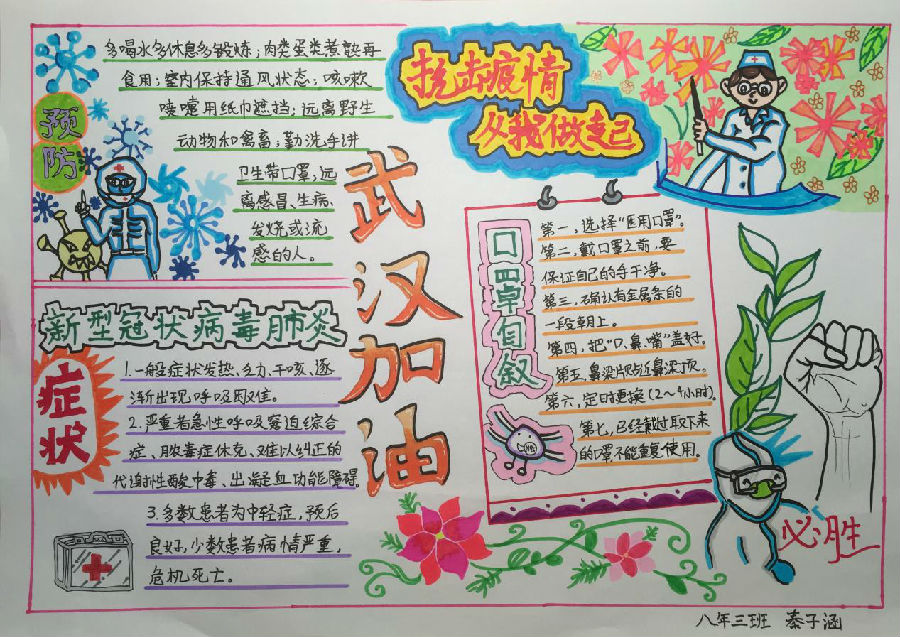 预防
多喝水多休息多锻炼；肉类蛋类煮熟再
食用；室内保持通风状态；咳嗽
喷嚏用纸巾遮挡；远离野生
动物和禽畜；勤洗手讲
卫生带口罩；远
离感冒、生病、
发烧或流
感的人。
抗击疫情
从我做起
武汉加油
新型冠状病毒肺炎
症状
1.一般症状发热、乏力、干咳、逐
渐出现呼吸困难。
2.严重者急性呼吸窘迫综合
症、脓毒症休克、难以纠正的
代谢性酸中毒、出凝血功能障碍
3.多数患者为中轻症，预后
良好，少数患者病情严重，
危机死亡。
口罩自叙
第一，选择“医用口罩”。
第二，戴口罩之前，要
保证自己的手干净。
第三，确认有金属条的
一段朝上。
第四，把“口、鼻、嘴”盖好。
第五，鼻梁片贴近鼻梁顶。
第六，定时更换（2～4小时）。
第七，已经戴过取下来
的罩不能重复使用。
必胜
八年三班 秦子涵